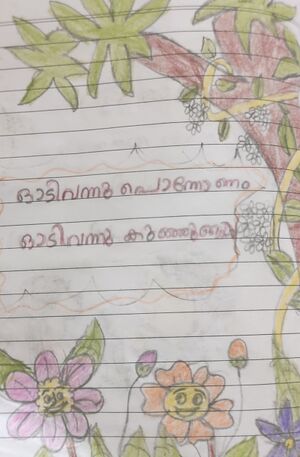 ഓടിവന്നു പൊന്നോണം
ഓടിവന്നു